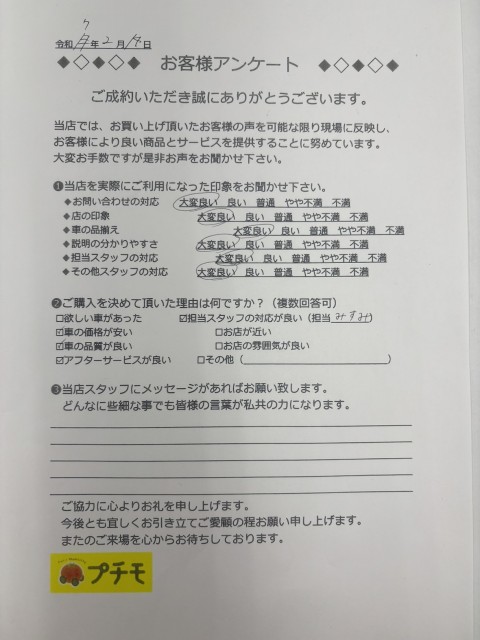 令和7年2月14日
◆◇◆◇◆ お客様アンケート ◆◇◆◇◆
ご成約いただき誠にありがとうございます。
当店では、お買い上げ頂いたお客様の声を可能な限り現場に反映し、
お客様により良い商品とサービスを提供することに努めています。
大変お手数ですが是非お声をお聞かせ下さい。
❶当店を実際にご利用になった印象をお聞かせ下さい。
◆お問い合わせの対応 大変良い 良い 普通 やや不満 不満
◆店の印象 大変良い 良い 普通 やや不満 不満
◆車の品揃え 大変良い 良い 普通 やや不満 不満
◆説明の分かりやすさ 大変良い 良い 普通 やや不満 不満
◆担当スタッフの対応 大変良い 良い 普通 やや不満 不満
◆その他スタッフの対応 大変良い 良い 普通 やや不満 不満
❷ご購入を決めて頂いた理由は何ですか?(複数回答可)
□欲しい車があった ☑担当スタッフの対応が良い(担当 みすみ)
☑車の価格が安い □お店が近い
☑車の品質が良い □お店の雰囲気が良い
☑アフターサービスが良い □その他( )
❸当店スタッフにメッセージがあればお願い致します。
どんなに些細な事でも皆様の言葉が私共の力になります。
ご協力に心よりお礼を申し上げます。
今後とも宜しくお引き立てご愛顧の程お願い申し上げます。
またのご来場を心からお待ちしております。
プチモ